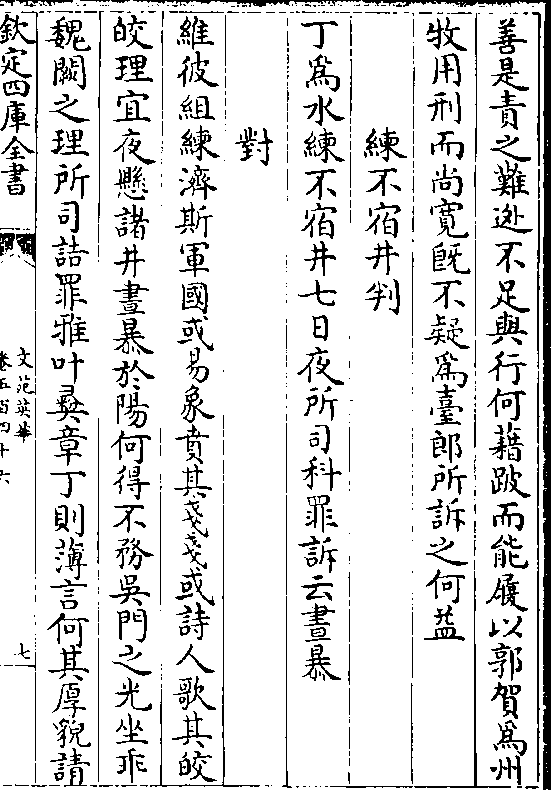 善是責之難逃不足與行何藉跛而能履以郭賀為州
牧用刑而尚寛旣不疑為臺郎所訴之何益
練不宿井判
丁為水練不宿井七日夜所司科罪訴云晝暴
對
維彼組練濟斯軍國或易象賁其戔戔或詩人歌其皎
皎理宜夜懸諸井晝暴於陽何得不務吳門之光坐乖
魏闕之理所司詰罪雅叶彞章丁則薄言何其厚貌請
欽定四庫全書
文苑英華
卷五百四十六
七